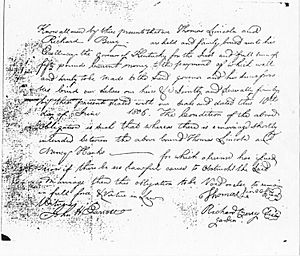 Know all men by these presents that we Thomas Lincoln and
Richard Berry are held and firmly bound unto his
Excellency the Governor of Kentucky for the Just and full sum of
fifty pounds current money the payment of which well
and truly to be made to the said governor and his
we bind our selves our heirs &c Jointly and severally firmly
by these presents sealed with our seals and dated this 10th
day of June 1806. The Condition of the above
Obligation is such that whereas there is a marriage shortly
intended between the above bound Thomas Lincoln and
Nancy Hanks for which a license has issued
now if there be no lawful cause to obstruct the said
marriage then this obligation to be Void or else to remain
in full force & Virtue in Law
Thomas Lincoln
Richard Berry
John H Parrott